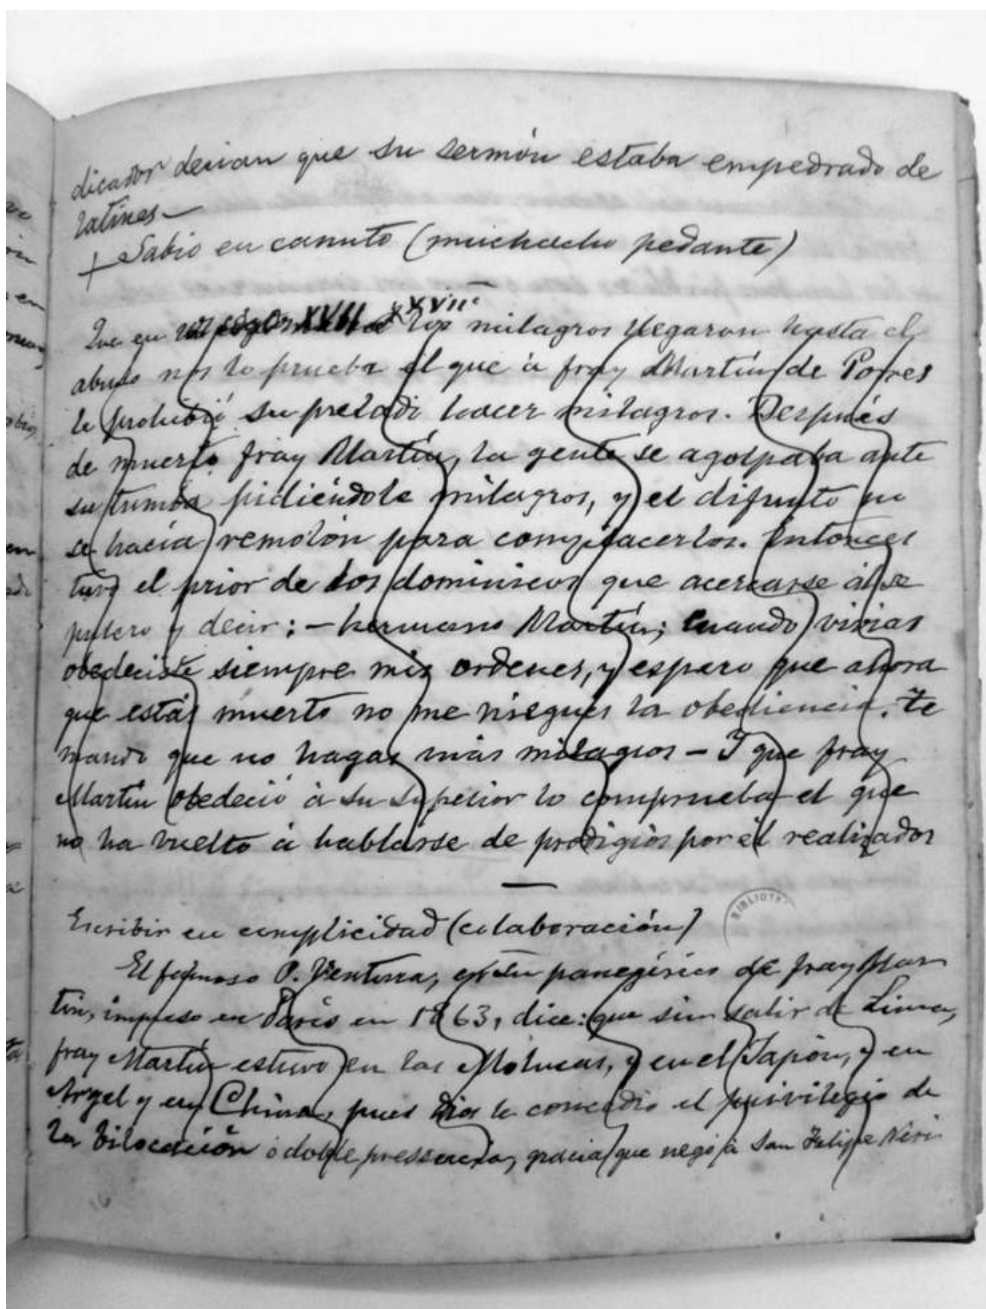 dicador decian que su sermón estaba empedrado de
latines—
+ Sabio en canuto (muchacho pedante)
Que en XVII los milagros llegaron hasta el
abuso nos lo prueba el que á fray Martín de Porres
le prohibió su prelado hacer milagros. Después
de muerto fray Martín, la gente se agolpaba ante
su tumba pidiéndole milagros, y el difunto no
se hacía remolón para complacerlos. Entonces
tuvo el prior de los dominicos que acercarse al se
pulcro y decir: — hermano Martín; cuando vivias
obedeciste siempre mis ordenes, y espero que ahora
que estás muerto no me niegues la obediencia. Te
mando que no hagas más milagros — I que fray
Martín obedeció á su superior lo comprueba el que
no ha vuelto á hablarse de prodigios por él realizados
Escribir en complicidad (colaboración)
BIBLIOTE
El famoso P. Ventura, en su panegírico de fray Mar
tín, impreso en París en 1863, dice: que sin salir de Lima,
fray Martín estuvo en las Molucas, y en el Japón, y en
Argel y en China, pues Dios le concedió el privilegio de
la bilocación ó doble presencia, gracia que negó á San Felipe Neri